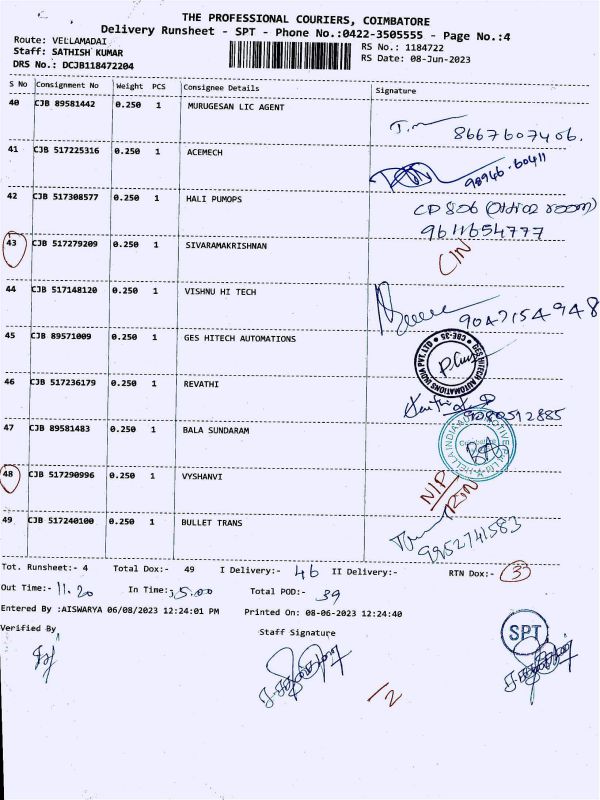 THE PROFESSIONAL COURIERS, COIMBATORE
Delivery Runsheet - SPT - Phone No.:0422-3505555 - Page No.:4
Route: VELLAMADAI
Staff: SATHISH KUMAR
DRS No.: DCJB118472204
RS No.: 1184722
RS Date: 08-Jun-2023
S No Consignment No Weight PCS Consignee Details Signature
40 CJB 89581442 0.250 1 MURUGESAN LIC AGENT
8667607406.
41 CJB 517225316 0.250 1 ACEMECH
98946-60411
42 CJB 517308577 0.250 1 HALI PUMOPS
CD 806 (Office room)
9611654777
43 CJB 517279209 0.250 1 SIVARAMAKRISHNAN
CIN
44 CJB 517148120 0.250 1 VISHNU HI TECH
9047154948
45 CJB 89571009 0.250 1 GES HITECH AUTOMATIONS
GES HITECH AUTOMATIONS INDIA PVT. LTD CBE-35
46 CJB 517236179 0.250 1 REVATHI
47 CJB 89581483 0.250 1 BALA SUNDARAM
48 CJB 517290996 0.250 1 VYSHANVI
NIP
RSIN
49 CJB 517240100 0.250 1 BULLET TRANS
9952741583
Tot. Runsheet:- 4 Total Dox:- 49 I Delivery:- 46 II Delivery:- RTN Dox:- 3
Out Time:- 11.20 In Time:- 15.00 Total POD:- 39
Entered By :AISWARYA 06/08/2023 12:24:01 PM Printed On: 08-06-2023 12:24:40
Verified By Staff Signature
SPT